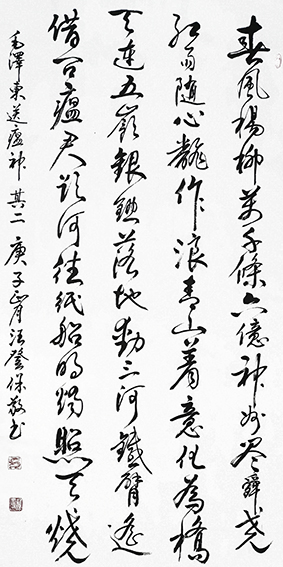 春風楊柳萬千條六億神州尽舜尧
红雨随心翻作浪青山着意化為橋
天連五嶺銀鋤落地動三河鐵臂遥
借问瘟君欲何往纸船明燭照天燒
毛澤東送瘟神 其二 庚子正月 登保敬书